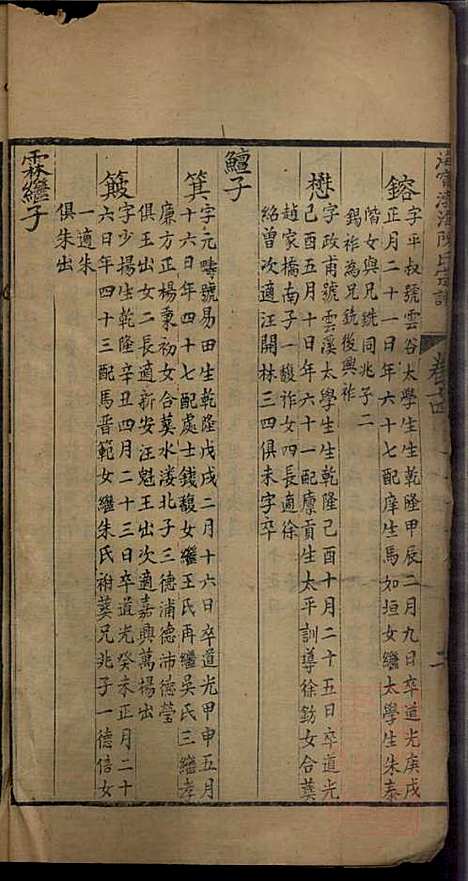 海寧渤海陳氏宗譜
卷十四
鎔
字平叔號雲谷太學生生乾隆甲辰二月九日卒道光庚戌
正月二十一日年六十七配庠生馬如垣女繼太學生朱泰
階女與兄珄同兆子二
錫祚為兄銃後興祚
懋
字政甫號雲溪太學生生乾隆己酉十月二十五日卒道光
己酉五月十日年六十一配廪貢生太平訓導徐勄女合葬
趙家橋南子一馥祚女四長適徐
紹曾次適汪開林三四俱未字卒
鱣子
箕
字元疇號易田生乾隆戊戌二月十六日卒道光甲申五月
十六日年四十七配處士錢馥女繼王氏再繼吳氏三繼孝
廉方正楊秉初女合葬水漊北子三德浦德沛德瑩
俱王出女二長適新安汪魁王出次適嘉興萬楊出
簸
字少揚生乾隆辛丑四月二十三日卒道光癸未正月二十
六日年四十三配馬晋範女繼朱氏祔葬兄兆子一德倍女
一適朱
俱朱出
霖繼子